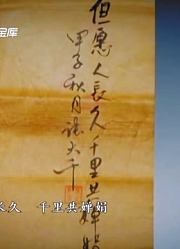 金库
但愿人長久千里共婵娟
甲子秋月張大千
长久 千里共婵娟